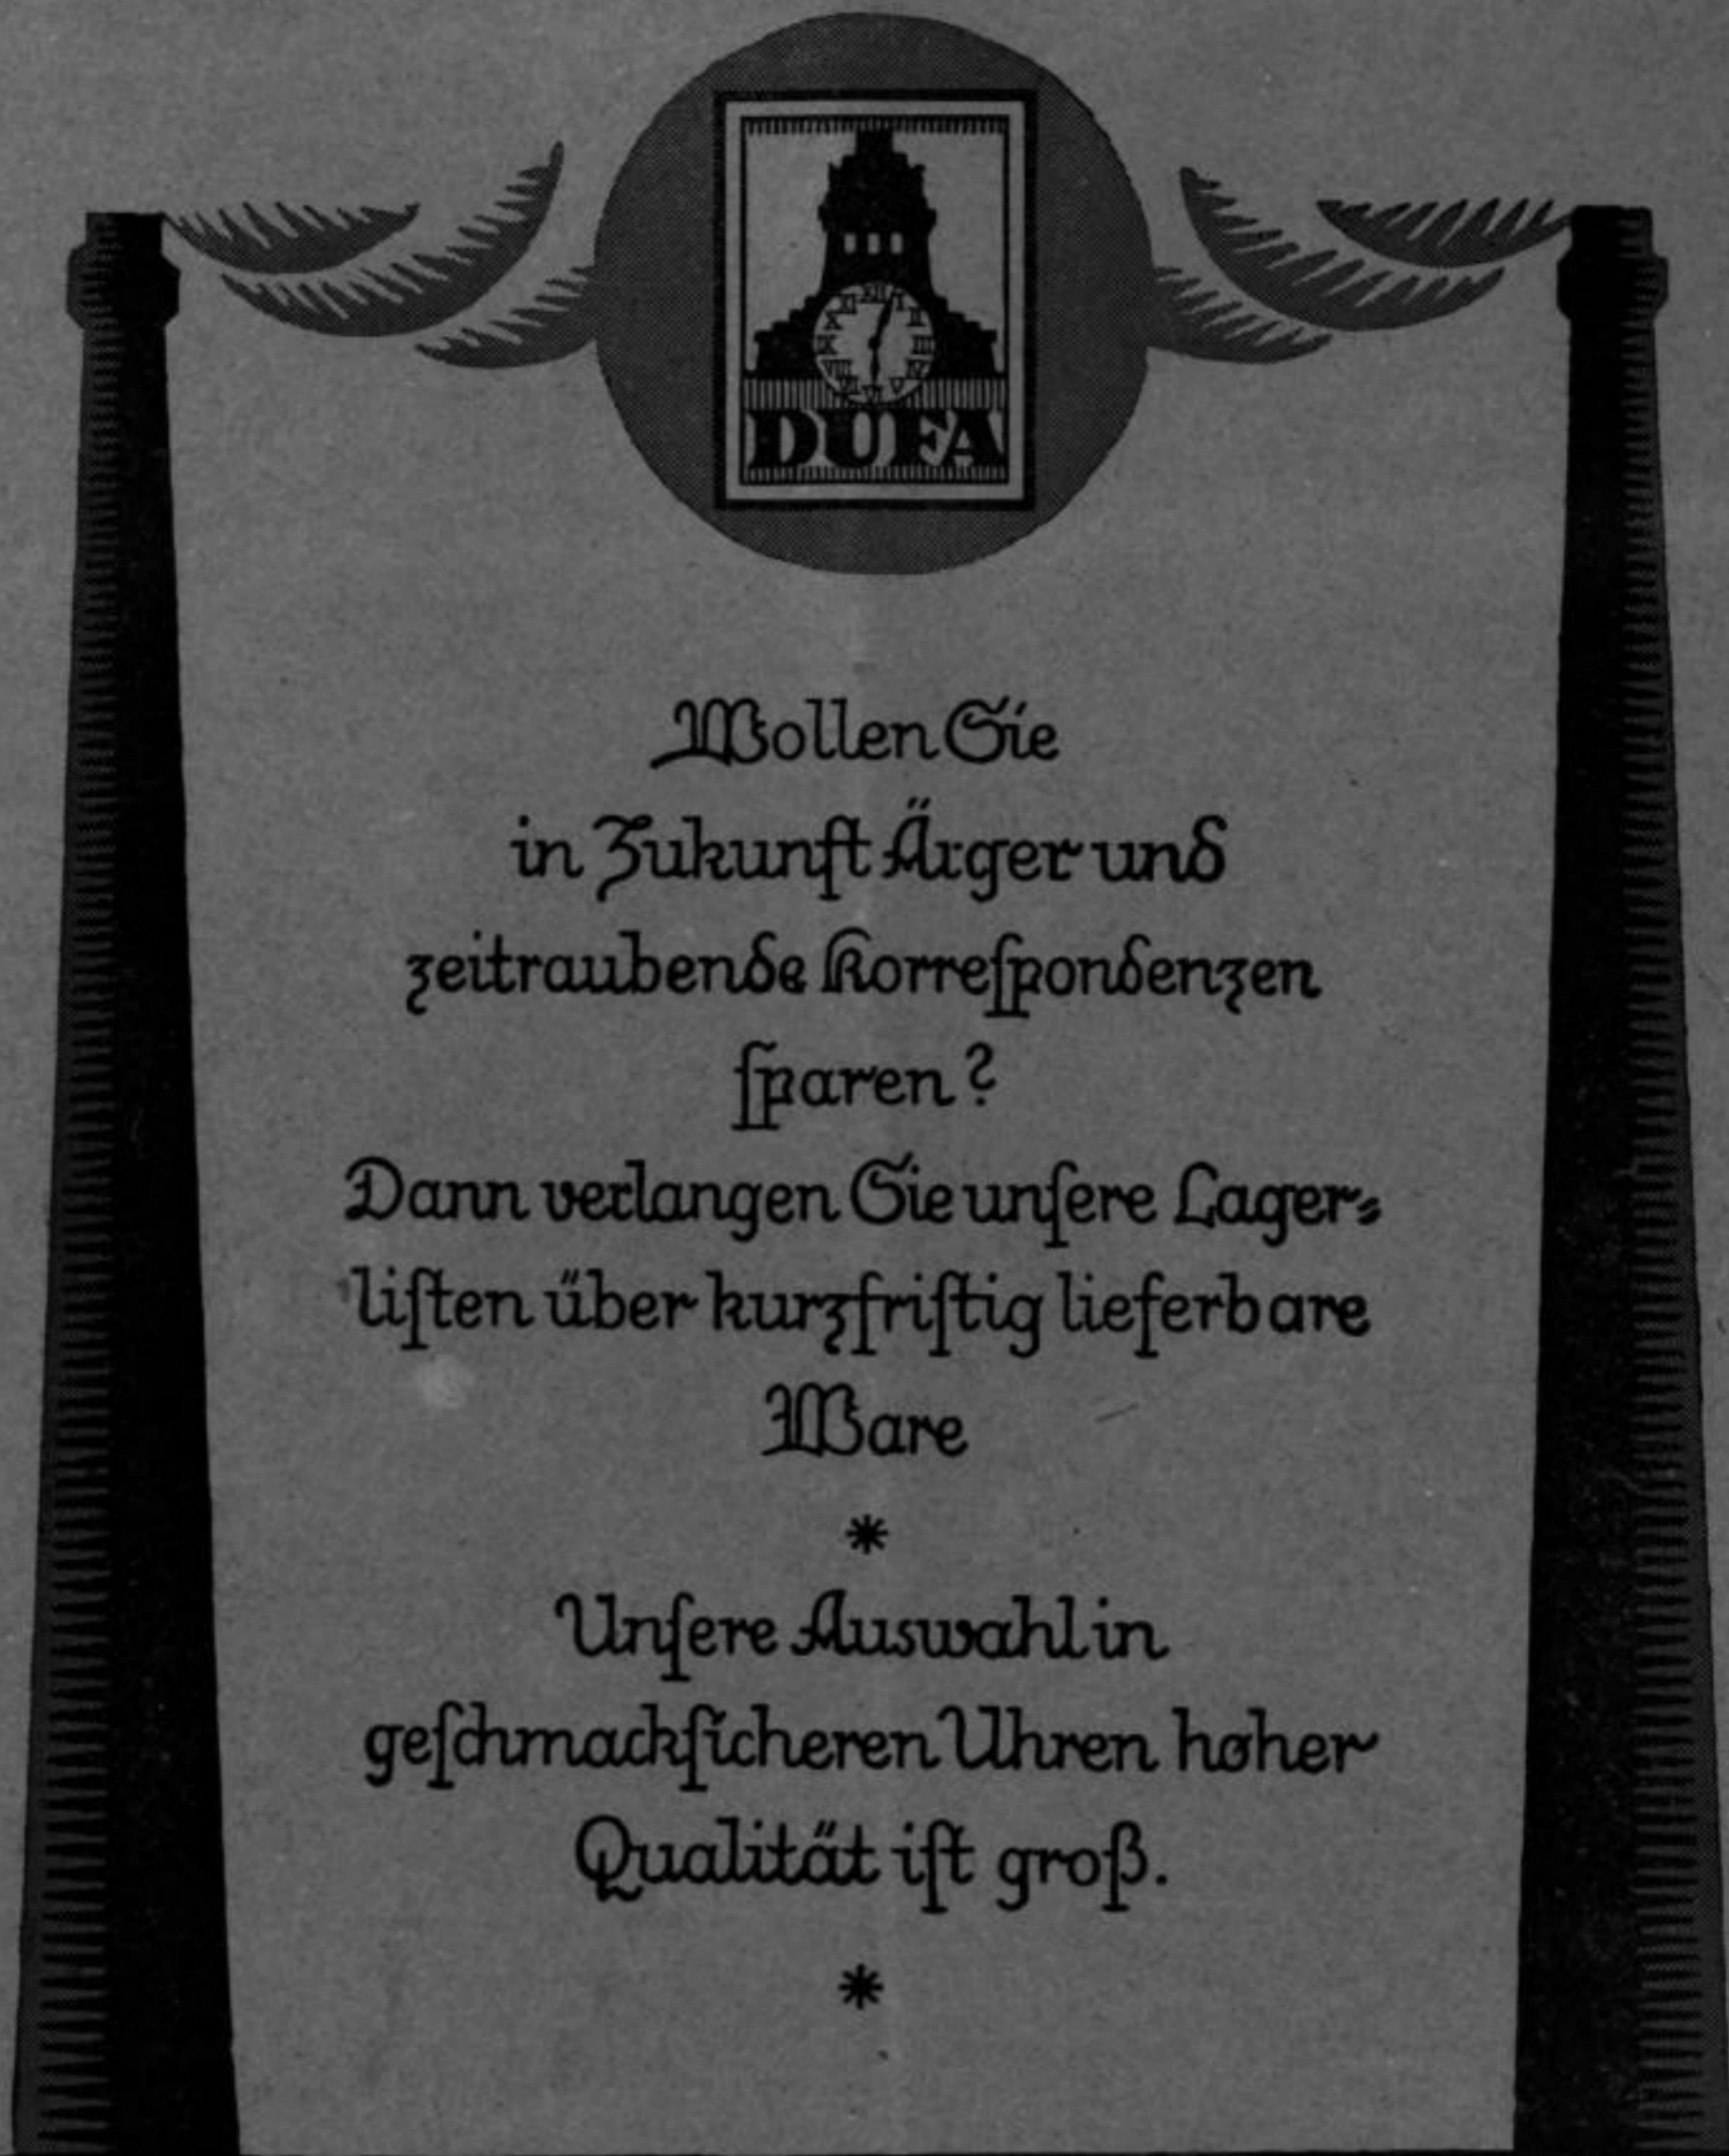 DUFA
Wollen Sie
in Zukunft Ärger und
zeitraubende Korreſpondenzen
ſparen?
Dann verlangen Sie unſere Lager⸗
liſten über kurzfriſtig lieferbare
Ware
*
Unſere Auswahl in
geſchmackſicheren Uhren hoher
Qualität iſt groß.
*